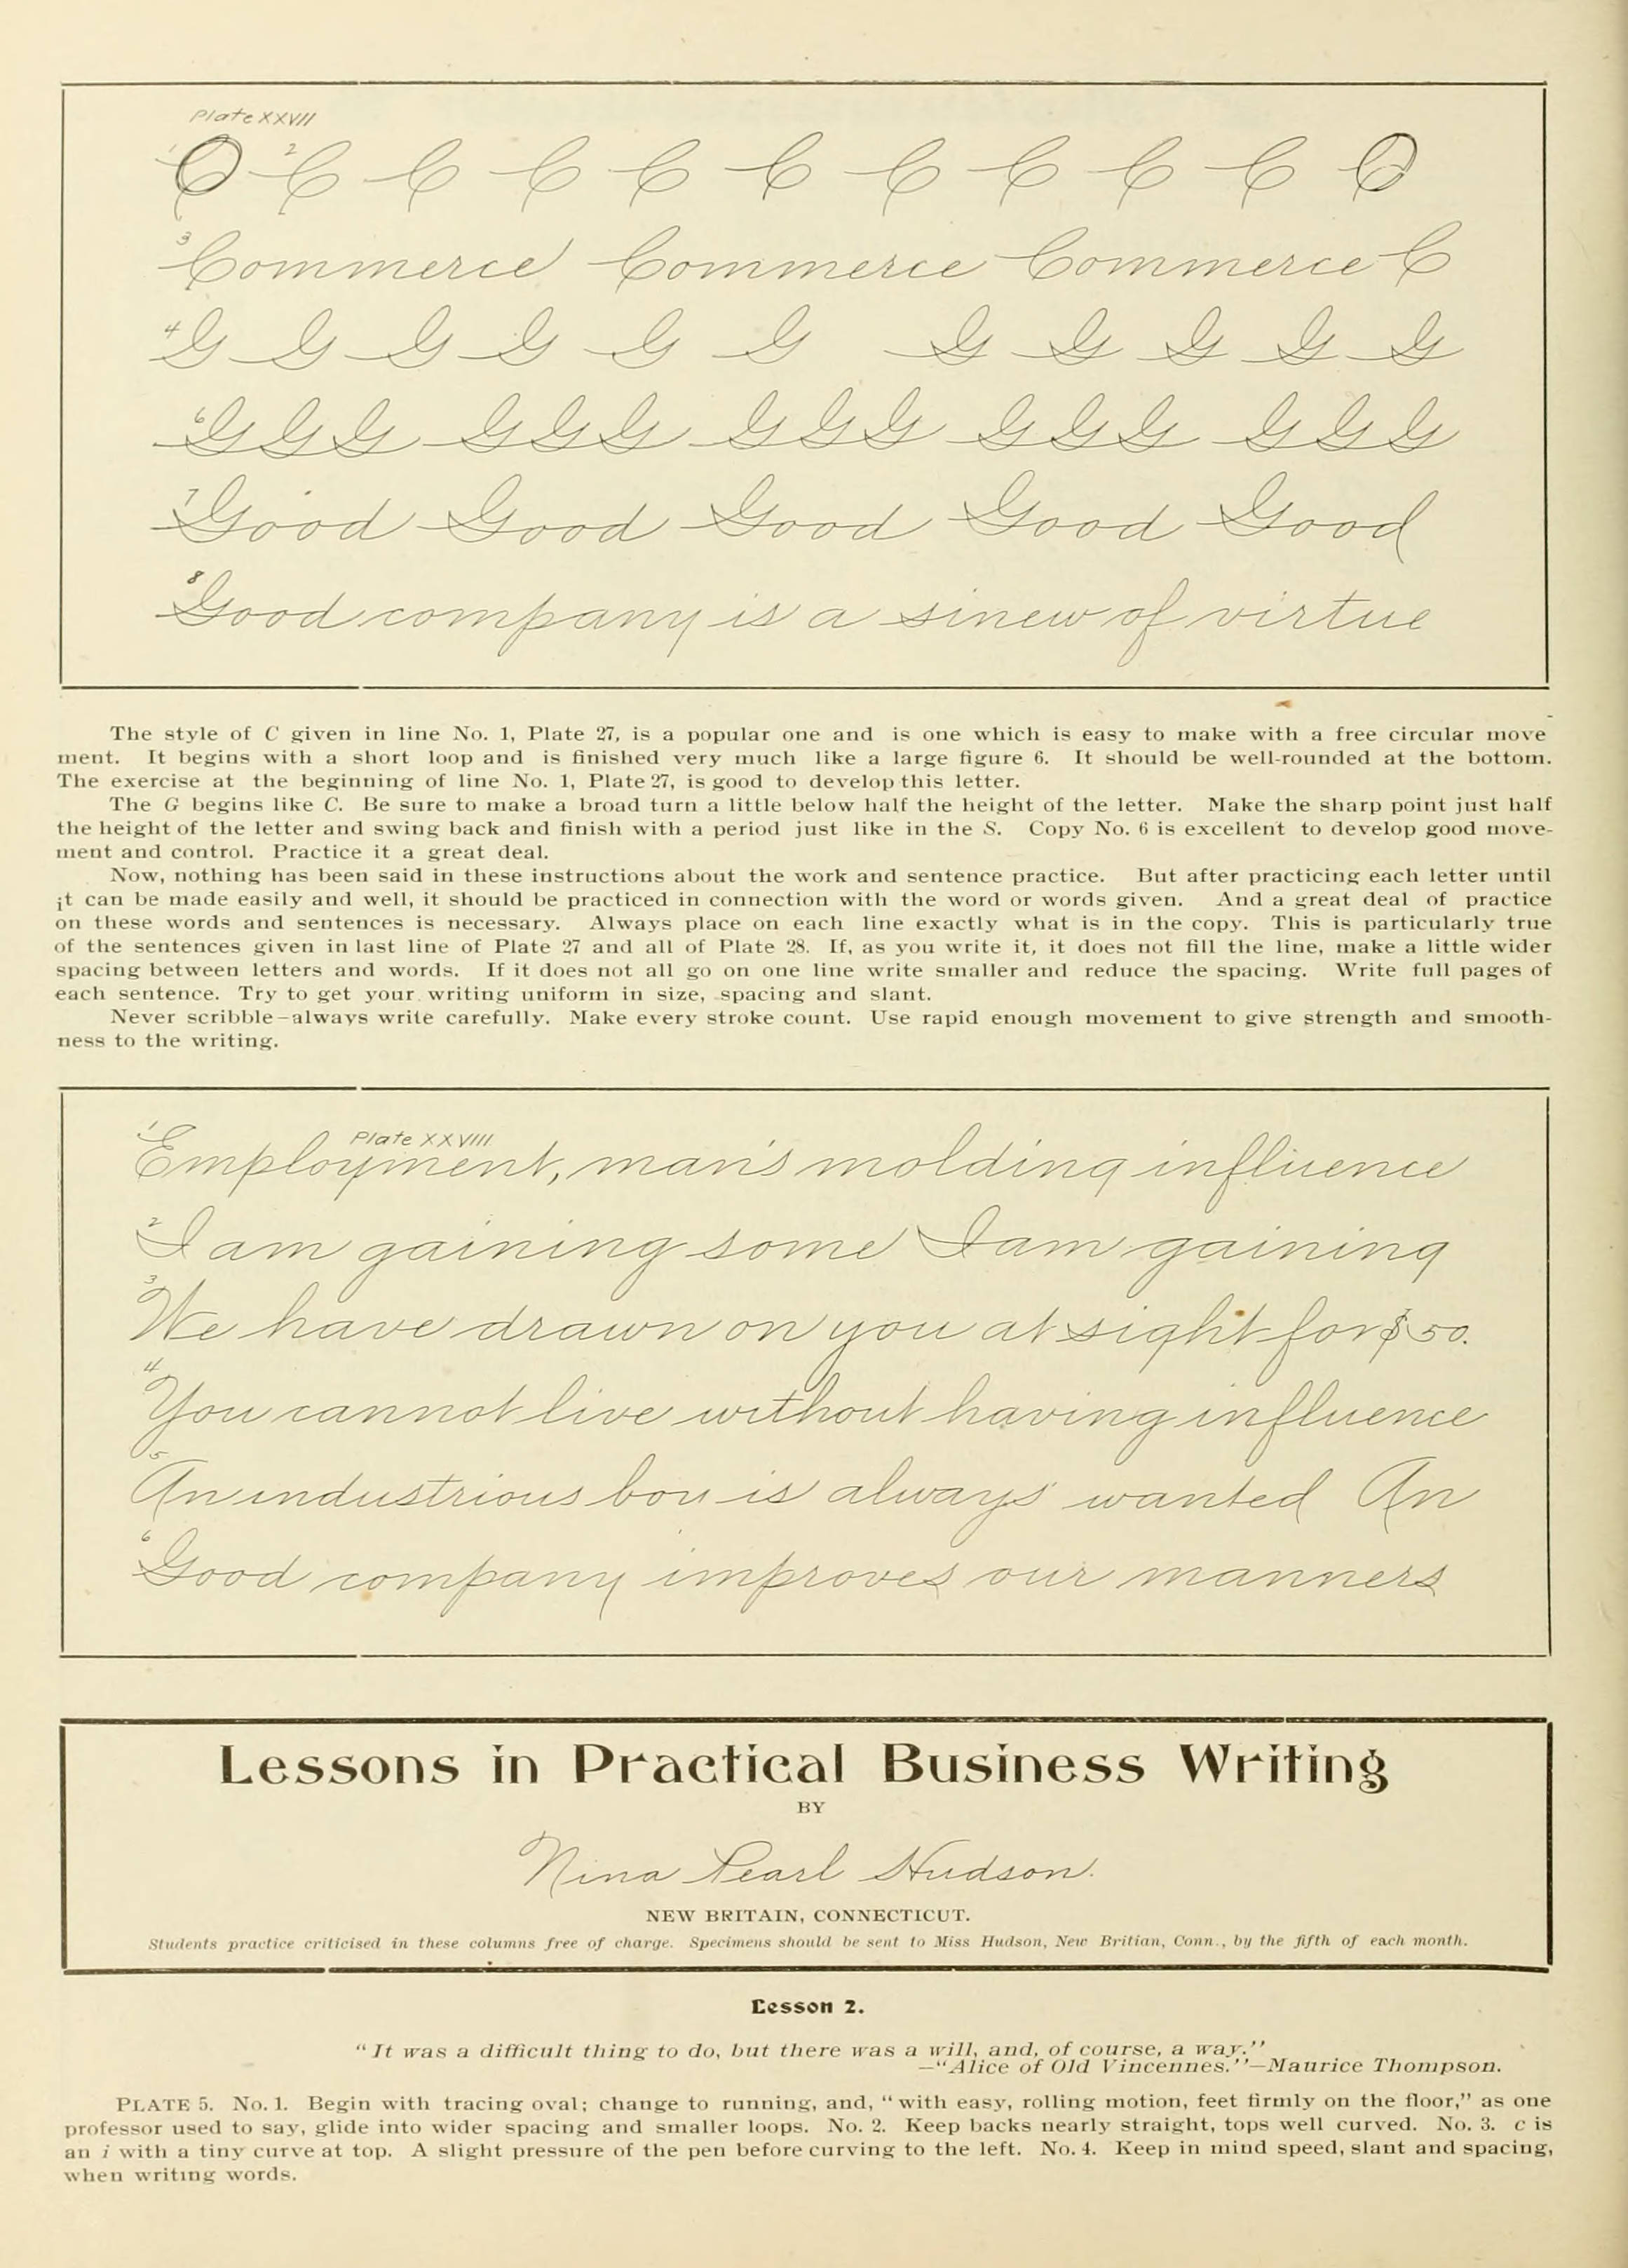 Plate XXVII
1 O 2 C C C C C C C C C O
3 Commerce Commerce Commerce C
4 G G G G G G G G G G G
6 G G G G G G G G G G G G G G G
7 Good Good Good Good Good
8 Good company is a sinew of virtue
The style of C given in line No. 1, Plate 27, is a popular one and is one which is easy to make with a free circular move
ment. It begins with a short loop and is finished very much like a large figure 6. It should be well-rounded at the bottom.
The exercise at the beginning of line No. 1, Plate 27, is good to develop this letter.
The G begins like C. Be sure to make a broad turn a little below half the height of the letter. Make the sharp point just half
the height of the letter and swing back and finish with a period just like in the S. Copy No. 6 is excellent to develop good move-
ment and control. Practice it a great deal.
Now, nothing has been said in these instructions about the work and sentence practice. But after practicing each letter until
it can be made easily and well, it should be practiced in connection with the word or words given. And a great deal of practice
on these words and sentences is necessary. Always place on each line exactly what is in the copy. This is particularly true
of the sentences given in last line of Plate 27 and all of Plate 28. If, as you write it, it does not fill the line, make a little wider
spacing between letters and words. If it does not all go on one line write smaller and reduce the spacing. Write full pages of
each sentence. Try to get your writing uniform in size, spacing and slant.
Never scribble—always write carefully. Make every stroke count. Use rapid enough movement to give strength and smooth-
ness to the writing.
Plate XXVIII
1 Employment, man's molding influence
2 I am gaining some I am gaining
3 We have drawn on you at sight for $50.
4 You cannot live without having influence
5 An industrious boy is always wanted An
6 Good company improves our manners
Lessons in Practical Business Writing
BY
Nina Pearl Hudson.
NEW BRITAIN, CONNECTICUT.
Students practice criticised in these columns free of charge. Specimens should be sent to Miss Hudson, New Britian, Conn., by the fifth of each month.
Lesson 2.
"It was a difficult thing to do, but there was a will, and, of course, a way."
—"Alice of Old Vincennes."—Maurice Thompson.
PLATE 5. No. 1. Begin with tracing oval; change to running, and, "with easy, rolling motion, feet firmly on the floor," as one
professor used to say, glide into wider spacing and smaller loops. No. 2. Keep backs nearly straight, tops well curved. No. 3. c is
an i with a tiny curve at top. A slight pressure of the pen before curving to the left. No. 4. Keep in mind speed, slant and spacing,
when writing words.